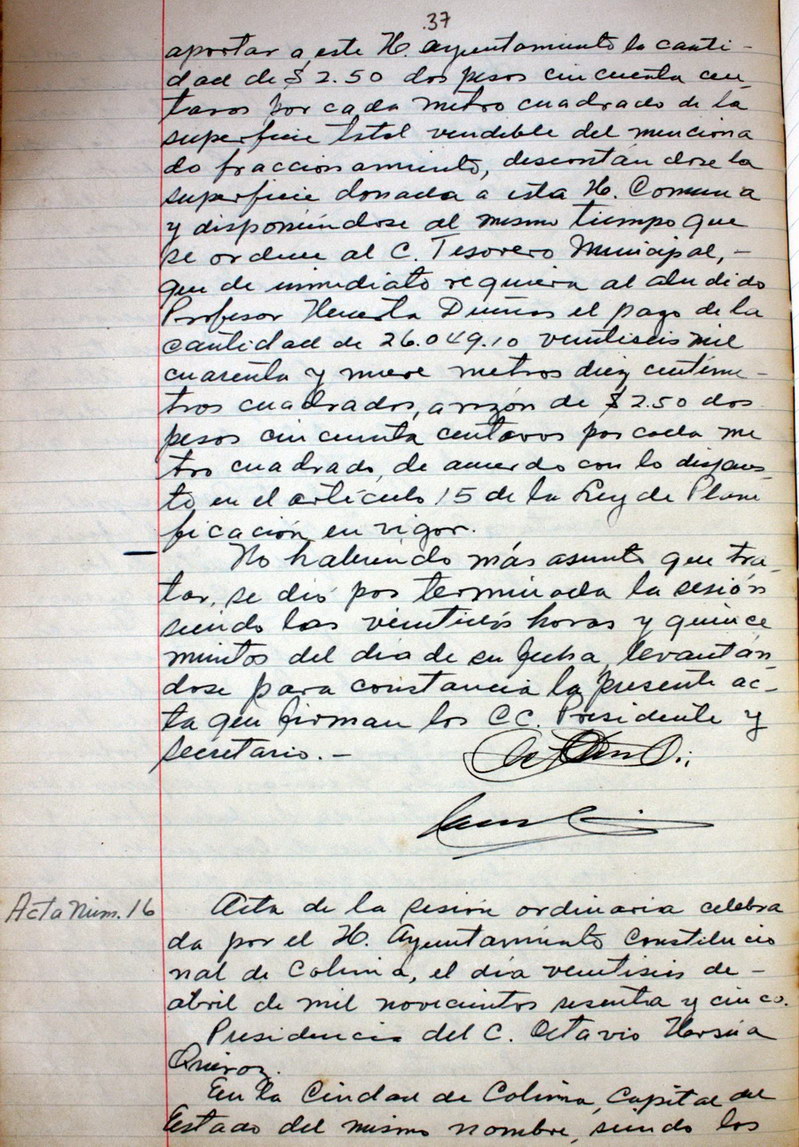 37
aportar a este H. Ayuntamiento la canti-
dad de $2.50 dos pesos cincuenta cen
tavos por cada metro cuadrado de la
superficie total vendible del menciona
do fraccionamiento, descontándose la
superficie donada a esta H. Comuna
y disponiéndose al mismo tiempo que
se ordene al C. Tesorero Municipal, -
que de inmediato requiera al aludido
Profesor Huerta Dueñas el pago de la
cantidad de 26.049.10 veintiseis mil
cuarenta y nueve metros diez centíme-
tros cuadrados, a razón de $2.50 dos
pesos cincuenta centavos por cada me
tro cuadrado, de acuerdo con lo dispues-
to en el artículo 15 de la Ley de Plani
ficación en vigor.
No habiendo más asunto que tra-
tar, se dió por terminada la sesión
siendo las veintidós horas y quince
minutos del día de su fecha, levantán
dose para constancia la presente ac-
ta que firman los CC. Presidente y
secretario. -
Acta Núm. 16
Acta de la sesión ordinaria celebra
da por el H. Ayuntamiento Constitucio
nal de Colima, el día veintiseis de -
abril de mil novecientos sesenta y cinco.
Presidencia del C. Octavio
En la Ciudad de Colima, Capital del
Estado del mismo nombre, siendo las